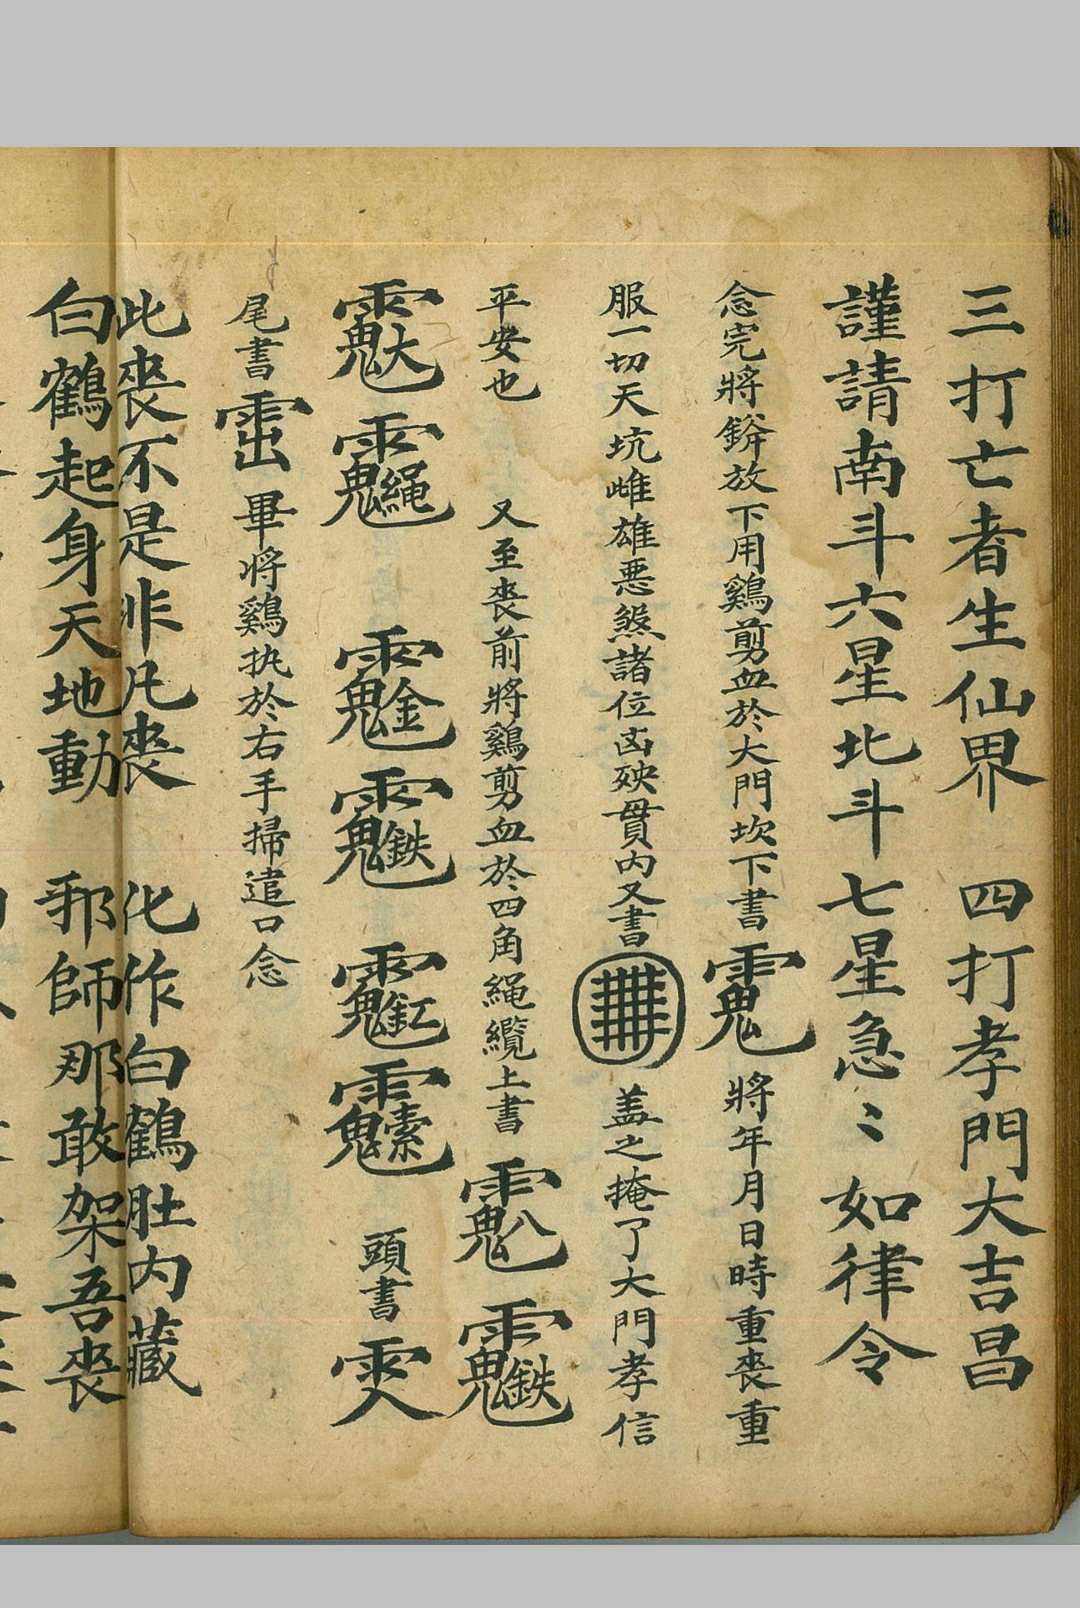 三打亡者生仙界 四打孝門大吉昌
謹請南斗六星北斗七星急〻如律令
念完將鋅放下用鷄剪血於大門坎下書 將年月日時重丧重
服一切天坑雌雄恶煞諸位凶殃貫内又書 盖之掩了大門孝信
平安也 又至丧前將鷄剪血於四角绳纜上書
頭書
尾書 畢将鷄执於右手掃遣口念
此丧不是非凡丧 化作白鶴肚内藏
白鶴起身天地動 邪師那敢架吾丧